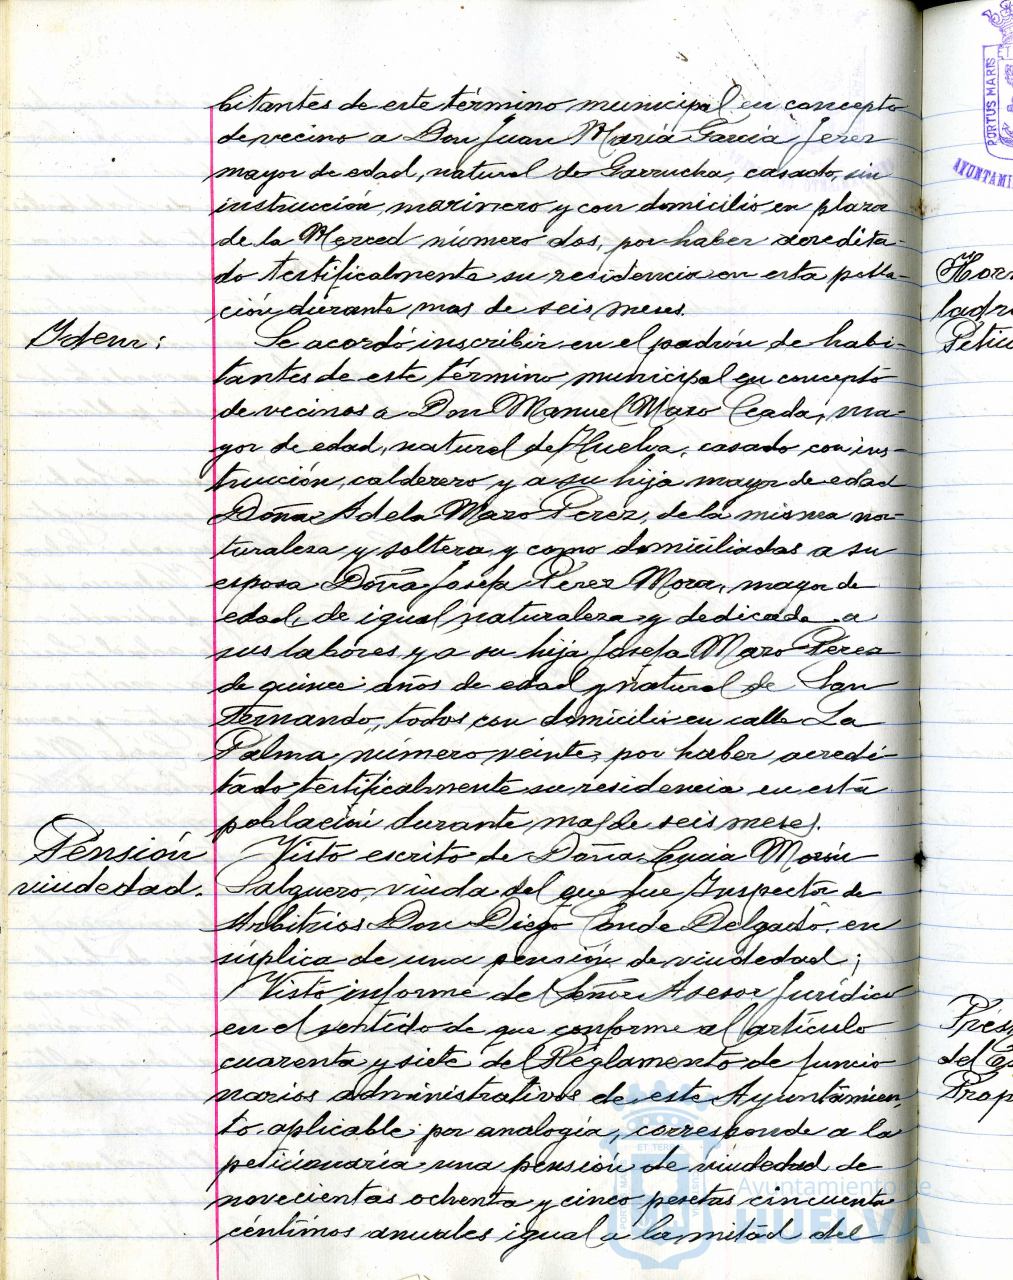 bitantes de este término municipal en concepto
de vecino a Don Juan María García Jerez
mayor de edad, natural de Garrucha, casado, sin
instrucción, marinero y con domicilio en plaza
de la Merced número dos, por haber acredita-
do testificalmente su residencia en esta pobla-
ción durante mas de seis meses.
Idem:
Se acordó inscribir en el padrón de habi-
tantes de este término municipal en concepto
de vecinos a Don Manuel Mazo Ceada, ma-
yor de edad, natural de Huelva, casado con ins-
trucción, calderero y a su hija mayor de edad
Doña Adela Mazo Perez, de la misma na-
turaleza y soltera, y como domiciliadas a su
esposa Doña Josefa Pérez Mora, mayor de
edad, de igual naturaleza y dedicada a
sus labores y a su hija Josefa Mazo Pérez
de quince años de edad y natural de San
Fernando, todos con domicilio en calle La
Palma número veinte, por haber acredi-
tado testificalmente su residencia en esta
población durante mas de seis meses.
Pensión
viudedad.
Visto escrito de Doña Lucia Morón
Salguero, viuda del que fue Inspector de
Arbitrios Don Diego Conde Delgado, en
súplica de una pensión de viudedad;
Visto informe del Señor Asesor Jurídico
en el sentido de que conforme al artículo
cuarenta y siete del Reglamento de funcio
narios administrativos de este Ayuntamien
to, aplicable por analogía, corresponde a la
peticionaria una pensión de viudedad de
novecientas ochenta y cinco pesetas cincuenta
céntimos anuales igual a la mitad del
PORTUS MARIS
AYUNTAMI
ladr
Petic
Prés
Prop
Ayuntamiento de
HUELVA